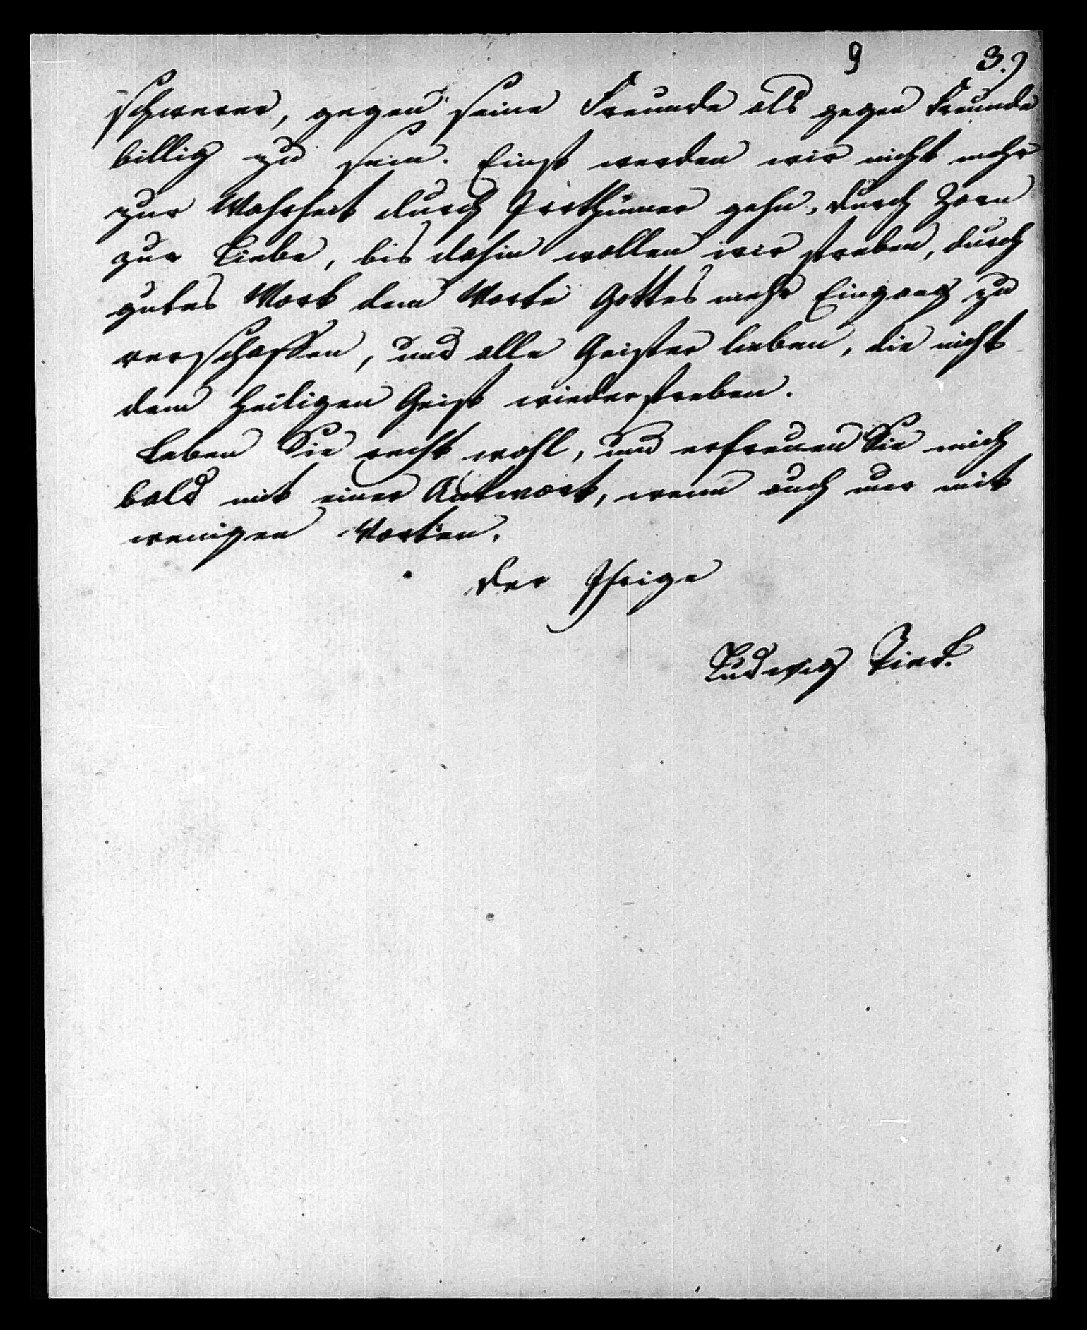 9 3.)
schwerer, gegen seine Freunde als gegen Freunde
billig zu sein. Einst werden wir nicht mehr
zur Wahrheit durch Irrthümer gehn, durch Zorn
zur Liebe, bis dahin wollen wir streben, durch
gutes Werk dem Worte Gottes mehr Eingang zu
verschaffen, und alle Geister lieben, die nicht
dem Heiligen Geist wiederstreben.
Leben Sie recht wohl, und erfreuen Sie mich
bald mit einer Antwort, wenn auch nur mit
wenigen Worten.
der Ihrige
Ludwig Tieck.